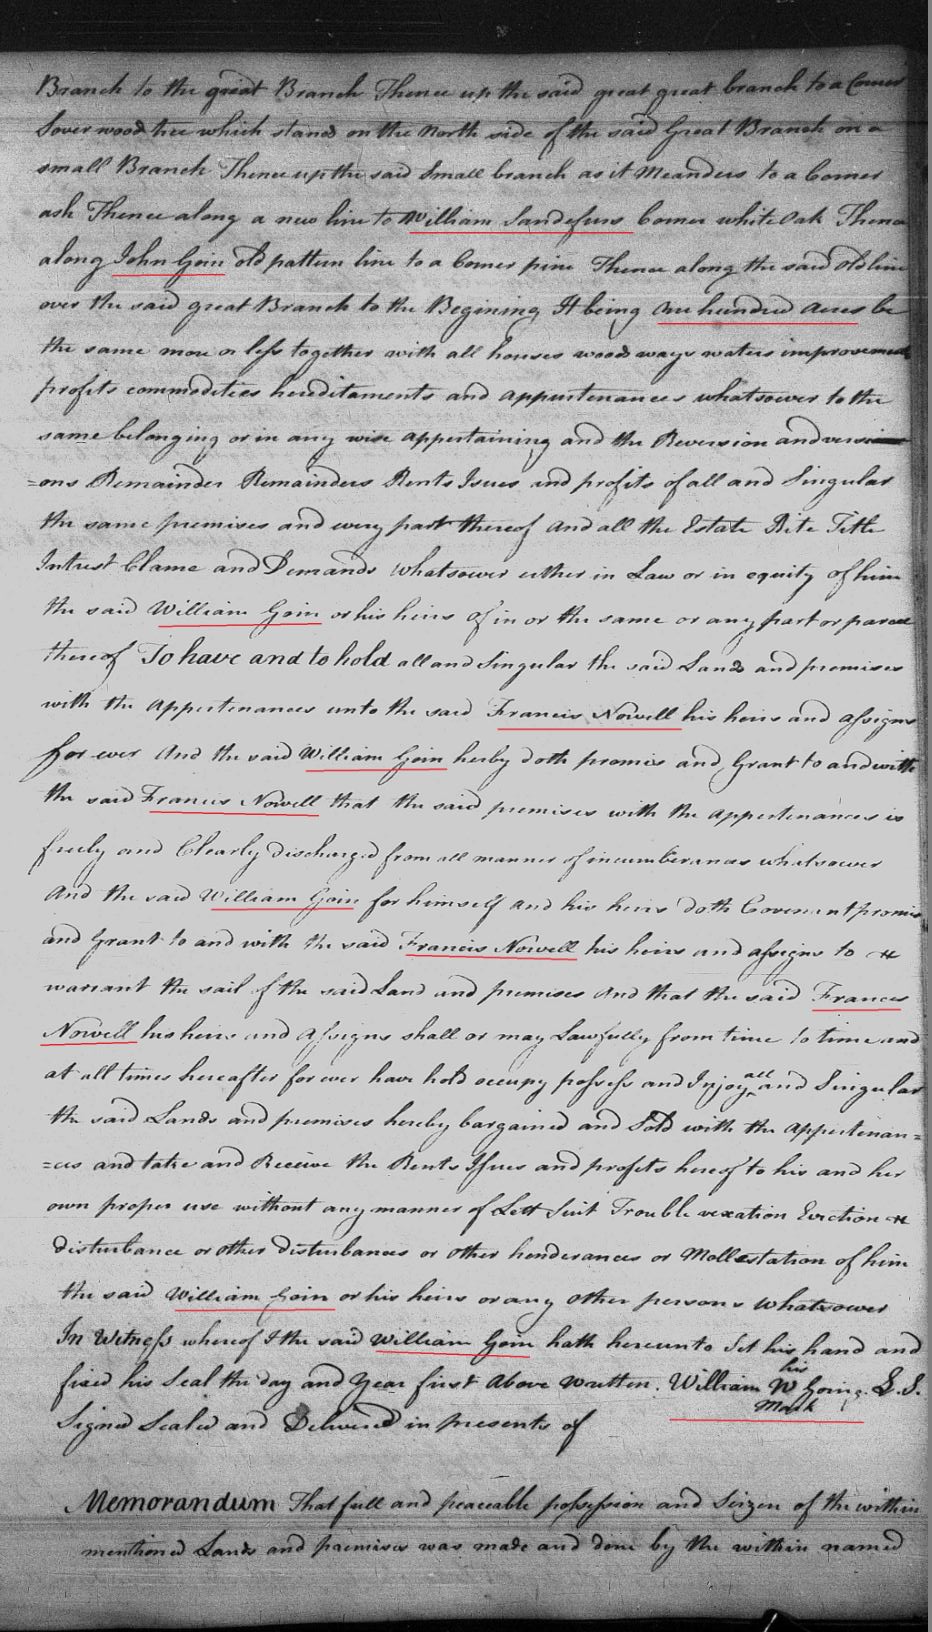 Branch to the great Branch Thence up the said great great branch to a Corner
Sover wood tree which stands on the North side of the said Great Branch on a
small Branch Thence up the said Small branch as it Meanders to a Corner
ash Thence along a new line to William Sandefurs Corner white Oak Thence
along John Goin old pattern line to a Corner pine Thence along the said old line
over the said great Branch to the Begining It being one hundred acres be
the same more or less together with all houses woods ways waters improvements
profits commodities heriditaments and appurtenances whatsower to the
same belonging or in any wise appertaining and the Reversion and versi
=ons Remainder Remainders Rents Isues and profits of all and Singular
the same premises and every part thereof and all the Estate Rite Title
Intrust Clame and Demands whatsower either in Law or in equity of him
the said William Goin or his heirs of in or the same or any part or parcel
thereof To have and to hold all and Singular the said Land and premises
with the Appertenances unto the said Francis Nowell his heirs and assigns
for ever And the said William Goin herby doth promis and Grant to and with
the said Francis Nowell that the said premises with the appertenances is
freely and Clearly discharged from all manner of incumberances whatsower
And the said William Goin for himself and his heirs doth Covenant promis
and Grant to and with the said Francis Nowell his heirs and assigns to &
warrant the sail of the said Land and premises And that the said Frances
Nowell his heirs and Assigns shall or may Lawfully from time to time and
at all times hereafter for ever have hold occupy possess and Injoy all and Singular
the said Lands and premises hereby bargained and Sold with the appertenan=
=ces and take and Receive the Rents Issues and profits hereof to his and her
own proper use without any manner of Lett Suit Trouble vexation Eviction &
disturbance or other disturbances or other henderances or Mollestation of him
the said William Goin or his heirs or any other persons whatsower
In Witness whereof I the said William Goin hath hereunto Set his hand and
fixed his Seal the day and Year first Above written. William W Going. L.S.
his
Mark
Signed Sealed and Delivered in presents of
Memorandum That full and peaceable possession and Seizen of the within
mentioned Lands and premises was made and done by the within named